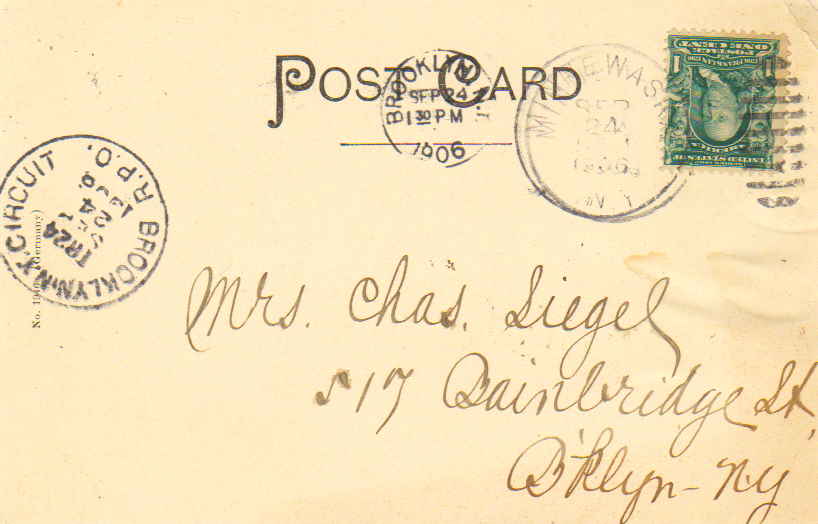 POST CARD
BROOKLYN, N.Y.
SEP 24
1 30 PM
1906
SEP
24
1906
N.Y.
ONE CENT
POSTAGE
FRANKLIN
1 1
UNITED STATES OF
AMERICA
BROOKLYN, N.Y. CIRCUIT R.P.O.
TR 24
SEP
24
1906
(Germany)
Mrs. Chas. Siegel
517 Bainbridge St.
B'klyn - N.Y